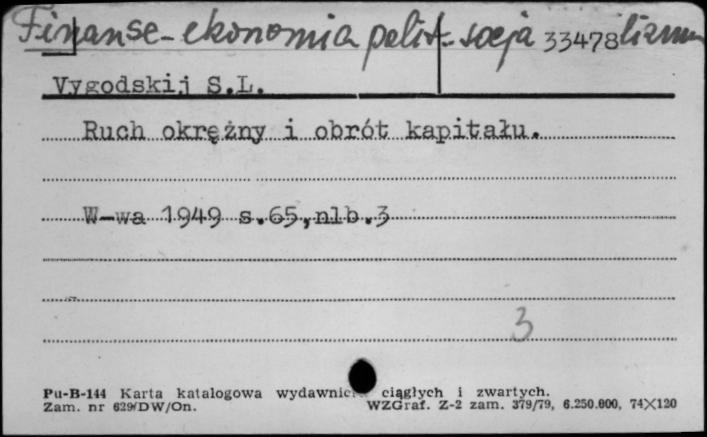 Finanse - ekonomia polit. socja 33478 lizmu
Vygodskij S.L.
Ruch okrężny i obrót kapitału.
W-wa 1949 s.65,nlb.3
3
Pu-B-144 Karta katalogowa wydawnic ciągłych i zwartych.
Zam. nr 629/DW/On. WZGraf. Z-2 zam. 379/79, 6.250.000, 74X120